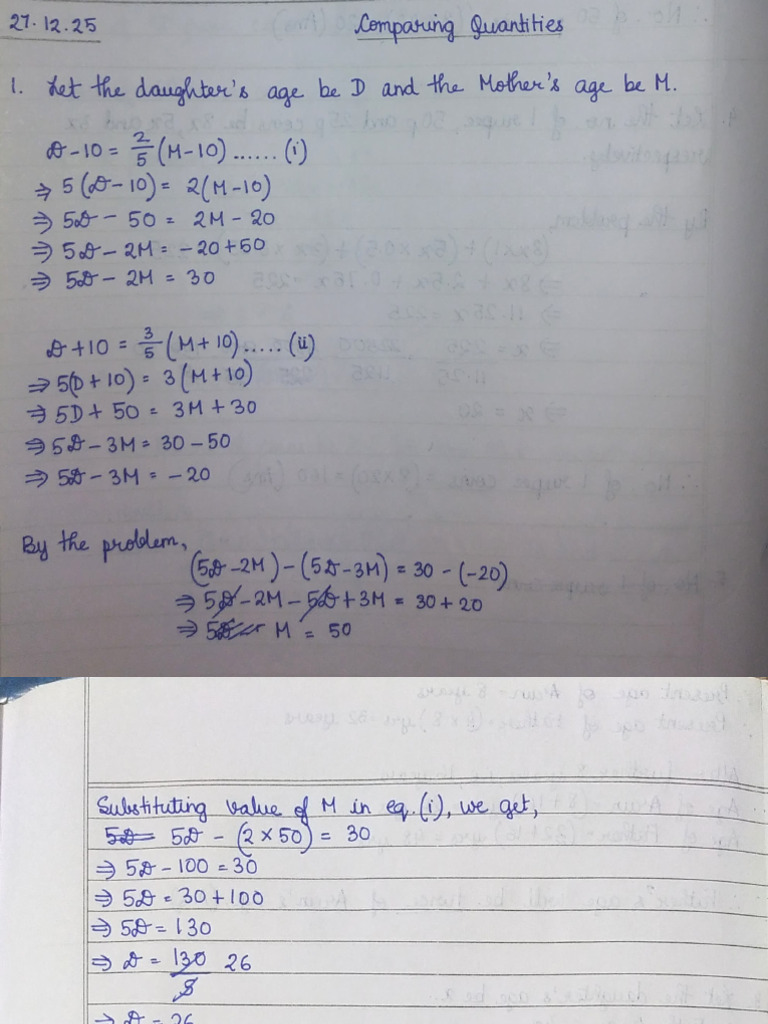 27.12.25
Comparing Quantities
1. Let the daughter's age be D and the Mother's age be M.
D-10 = 2/5 (M-10) ...... (i)
⇒ 5(D-10) = 2(M-10)
⇒ 5D - 50 = 2M - 20
⇒ 5D - 2M = -20+50
⇒ 5D - 2M = 30
D+10 = 3/5 (M+10) ..... (ii)
⇒ 5(D+10) = 3(M+10)
⇒ 5D + 50 = 3M + 30
⇒ 5D - 3M = 30 - 50
⇒ 5D - 3M = - 20
By the problem,
(5D - 2M) - (5D - 3M) = 30 - (-20)
⇒ 5D - 2M - 5D + 3M = 30 + 20
⇒ M = 50
Substituting value of M in eq.(i), we get,
5D - (2 × 50) = 30
⇒ 5D - 100 = 30
⇒ 5D = 30 + 100
⇒ 5D = 130
⇒ D = 130/5 26
⇒ D = 26